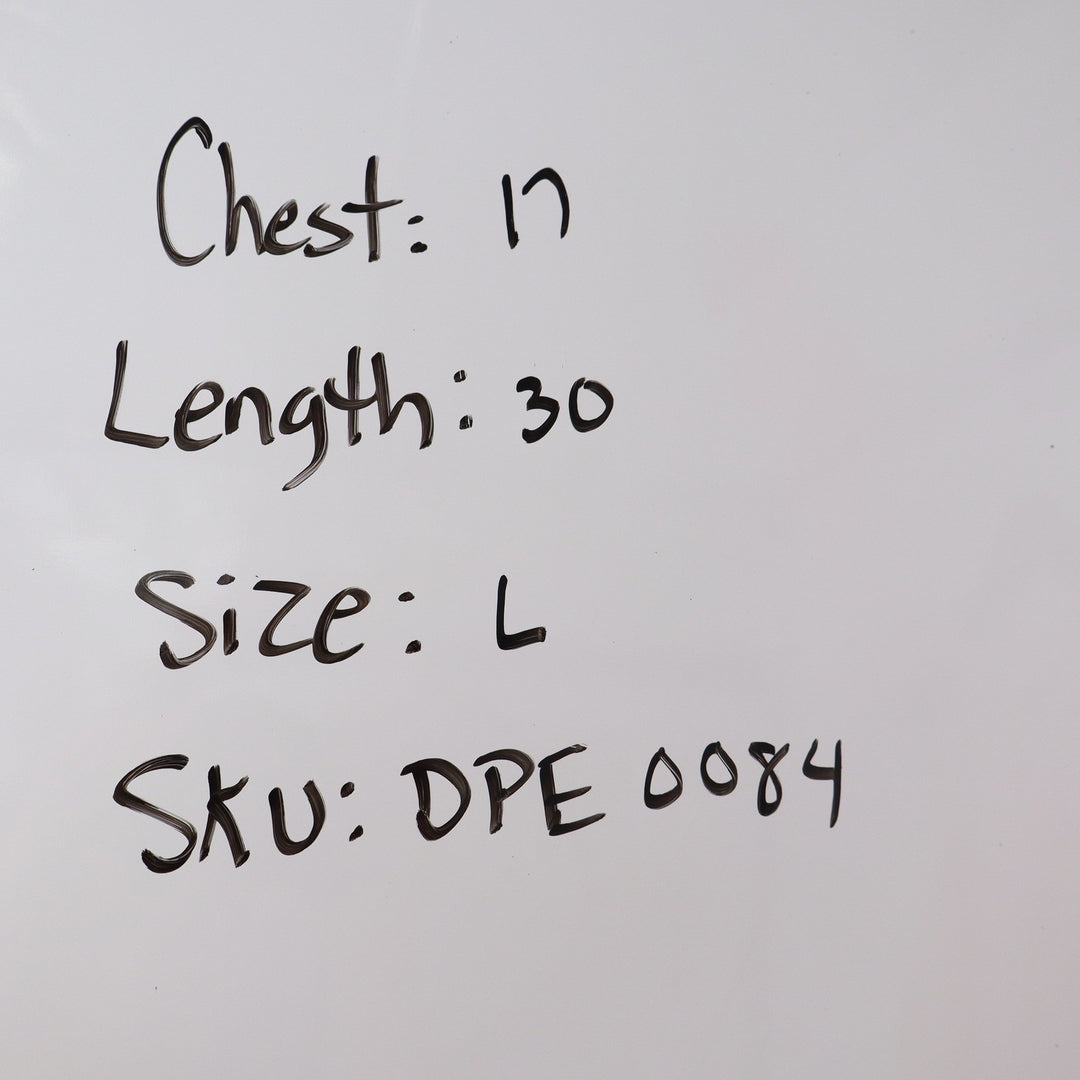 Chest: 17
Length: 30
Size: L
SKU: DPE 0084